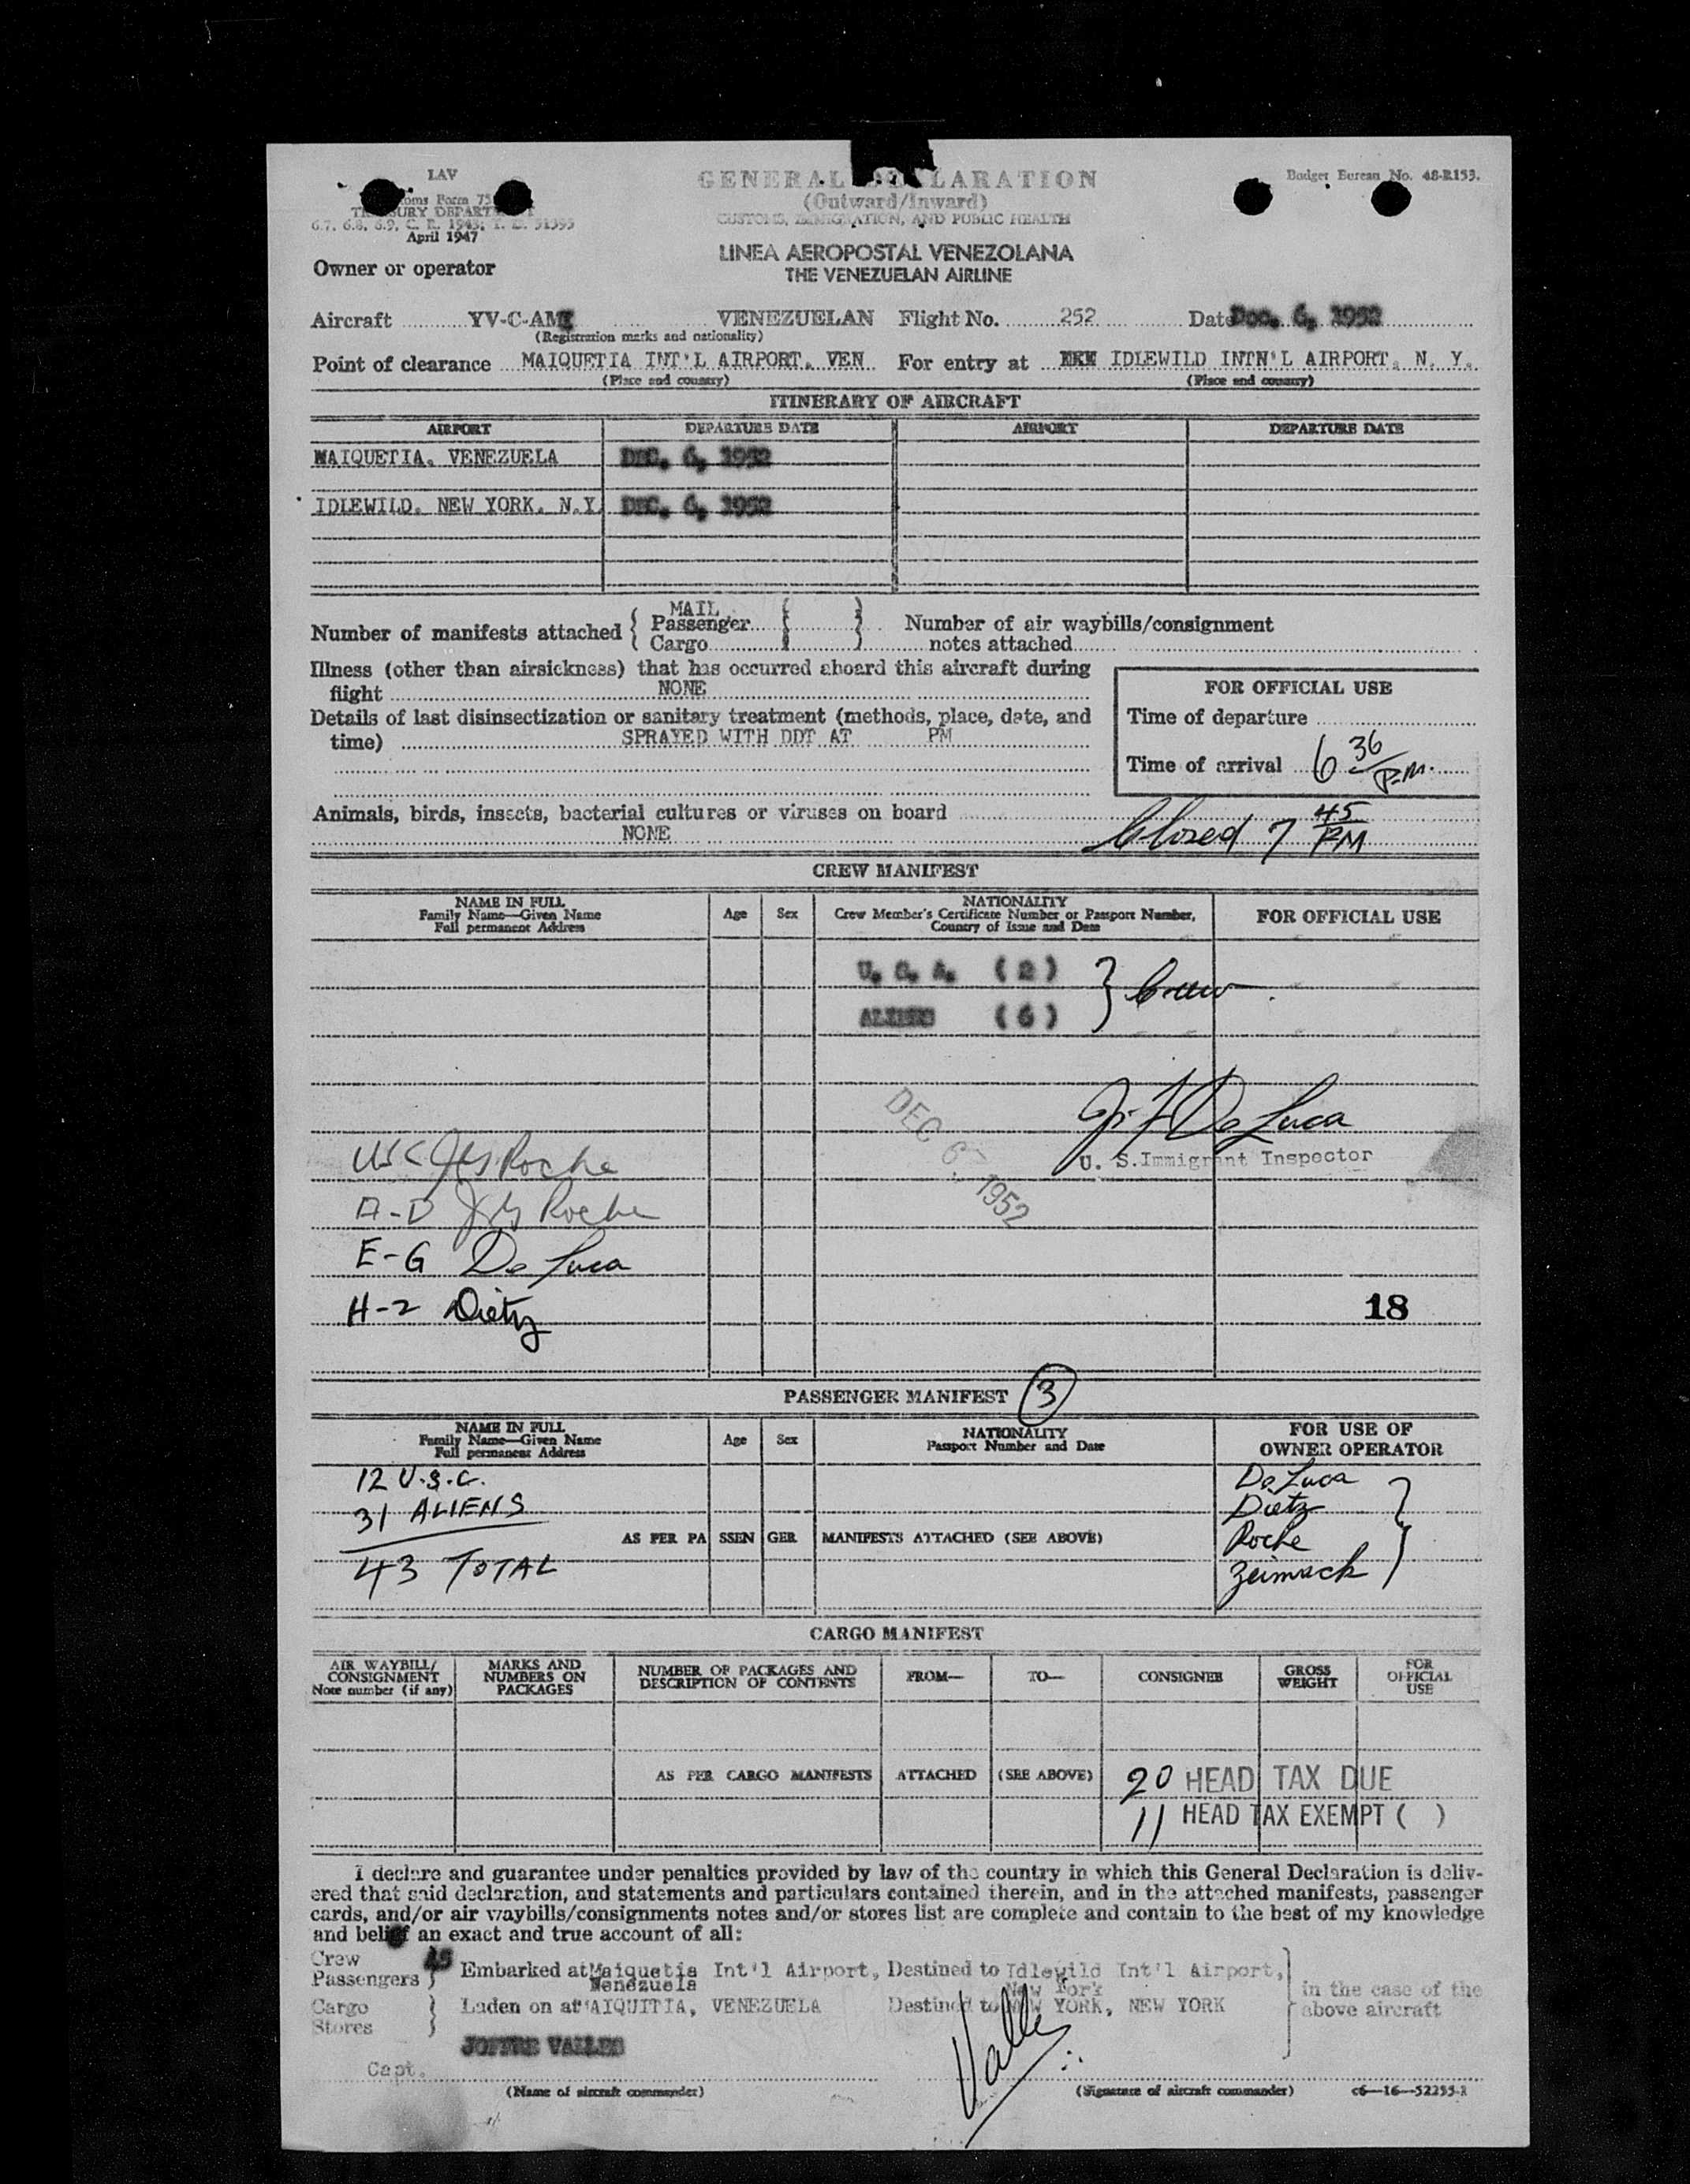 LAV
GENERAL DECLARATION
Budget Bureau No. 48-R153.
Customs Form 75
(Outward/Inward)
TREASURY DEPARTMENT
CUSTOMS, IMMIGRATION, AND PUBLIC HEALTH
6.7, 6.8, 6.9, C. R. 1943; T. D. 51395
April 1947
LINEA AEROPOSTAL VENEZOLANA
Owner or operator
THE VENEZUELAN AIRLINE
Aircraft YV-C-AM VENEZUELAN Flight No. 252 Date Dec. 6, 1952
(Registration marks and nationality)
Point of clearance MAIQUETIA INT'L AIRPORT, VEN. For entry at IDLEWILD INTN'L AIRPORT, N. Y.
(Place and country) (Place and country)
ITINERARY OF AIRCRAFT
AIRPORT DEPARTURE DATE AIRPORT DEPARTURE DATE
MAIQUETIA. VENEZUELA DEC. 6, 1952
IDLEWILD. NEW YORK. N.Y. DEC. 6, 1952
MAIL
Number of manifests attached { Passenger
Cargo
Number of air waybills/consignment
notes attached
Illness (other than airsickness) that has occurred aboard this aircraft during
flight NONE
FOR OFFICIAL USE
Details of last disinsectization or sanitary treatment (methods, place, date, and
time) SPRAYED WITH DDT AT PM
Time of departure
Time of arrival 6 36/P.M.
Animals, birds, insects, bacterial cultures or viruses on board
NONE
Closed 7 45 PM
CREW MANIFEST
NAME IN FULL
Family Name—Given Name
Full permanent Address
Age Sex
NATIONALITY
Crew Member's Certificate Number or Passport Number,
Country of Issue and Date
FOR OFFICIAL USE
U. S. A. (2)
ALIENS (6)
} Crew
DEC 6, 1952
J. F. De Luca
U. S. Immigrant Inspector
USC Roche
A-D Roche
E-G De Luca
H-2 Dietz
18
PASSENGER MANIFEST (3)
NAME IN FULL
Family Name—Given Name
Full permanent Address
Age Sex
NATIONALITY
Passport Number and Date
FOR USE OF
OWNER OPERATOR
12 U.S.C.
31 ALIENS
43 TOTAL
AS PER PASSENGER MANIFESTS ATTACHED (SEE ABOVE)
De Luca
Dietz
Roche
Zeimack
CARGO MANIFEST
AIR WAYBILL/
CONSIGNMENT
Note number (if any)
MARKS AND
NUMBERS ON
PACKAGES
NUMBER OF PACKAGES AND
DESCRIPTION OF CONTENTS
FROM— TO— CONSIGNEE
GROSS
WEIGHT
FOR
OFFICIAL
USE
AS PER CARGO MANIFESTS ATTACHED (SEE ABOVE)
20 HEAD TAX DUE
11 HEAD TAX EXEMPT ( )
I declare and guarantee under penalties provided by law of the country in which this General Declaration is deliv-
ered that said declaration, and statements and particulars contained therein, and in the attached manifests, passenger
cards, and/or air waybills/consignments notes and/or stores list are complete and contain to the best of my knowledge
and belief an exact and true account of all:
Crew
Passengers } Embarked at Maiquetia Int'l Airport, Destined to Idlewild Int'l Airport,
Venezuela New York
in the case of the
above aircraft
Cargo
Stores } Laden on at MAIQUITIA, VENEZUELA Destined to NEW YORK, NEW YORK
JOFFRE VALLES
Capt.
Valles
(Name of aircraft commander) (Signature of aircraft commander) c6—16—52255-1